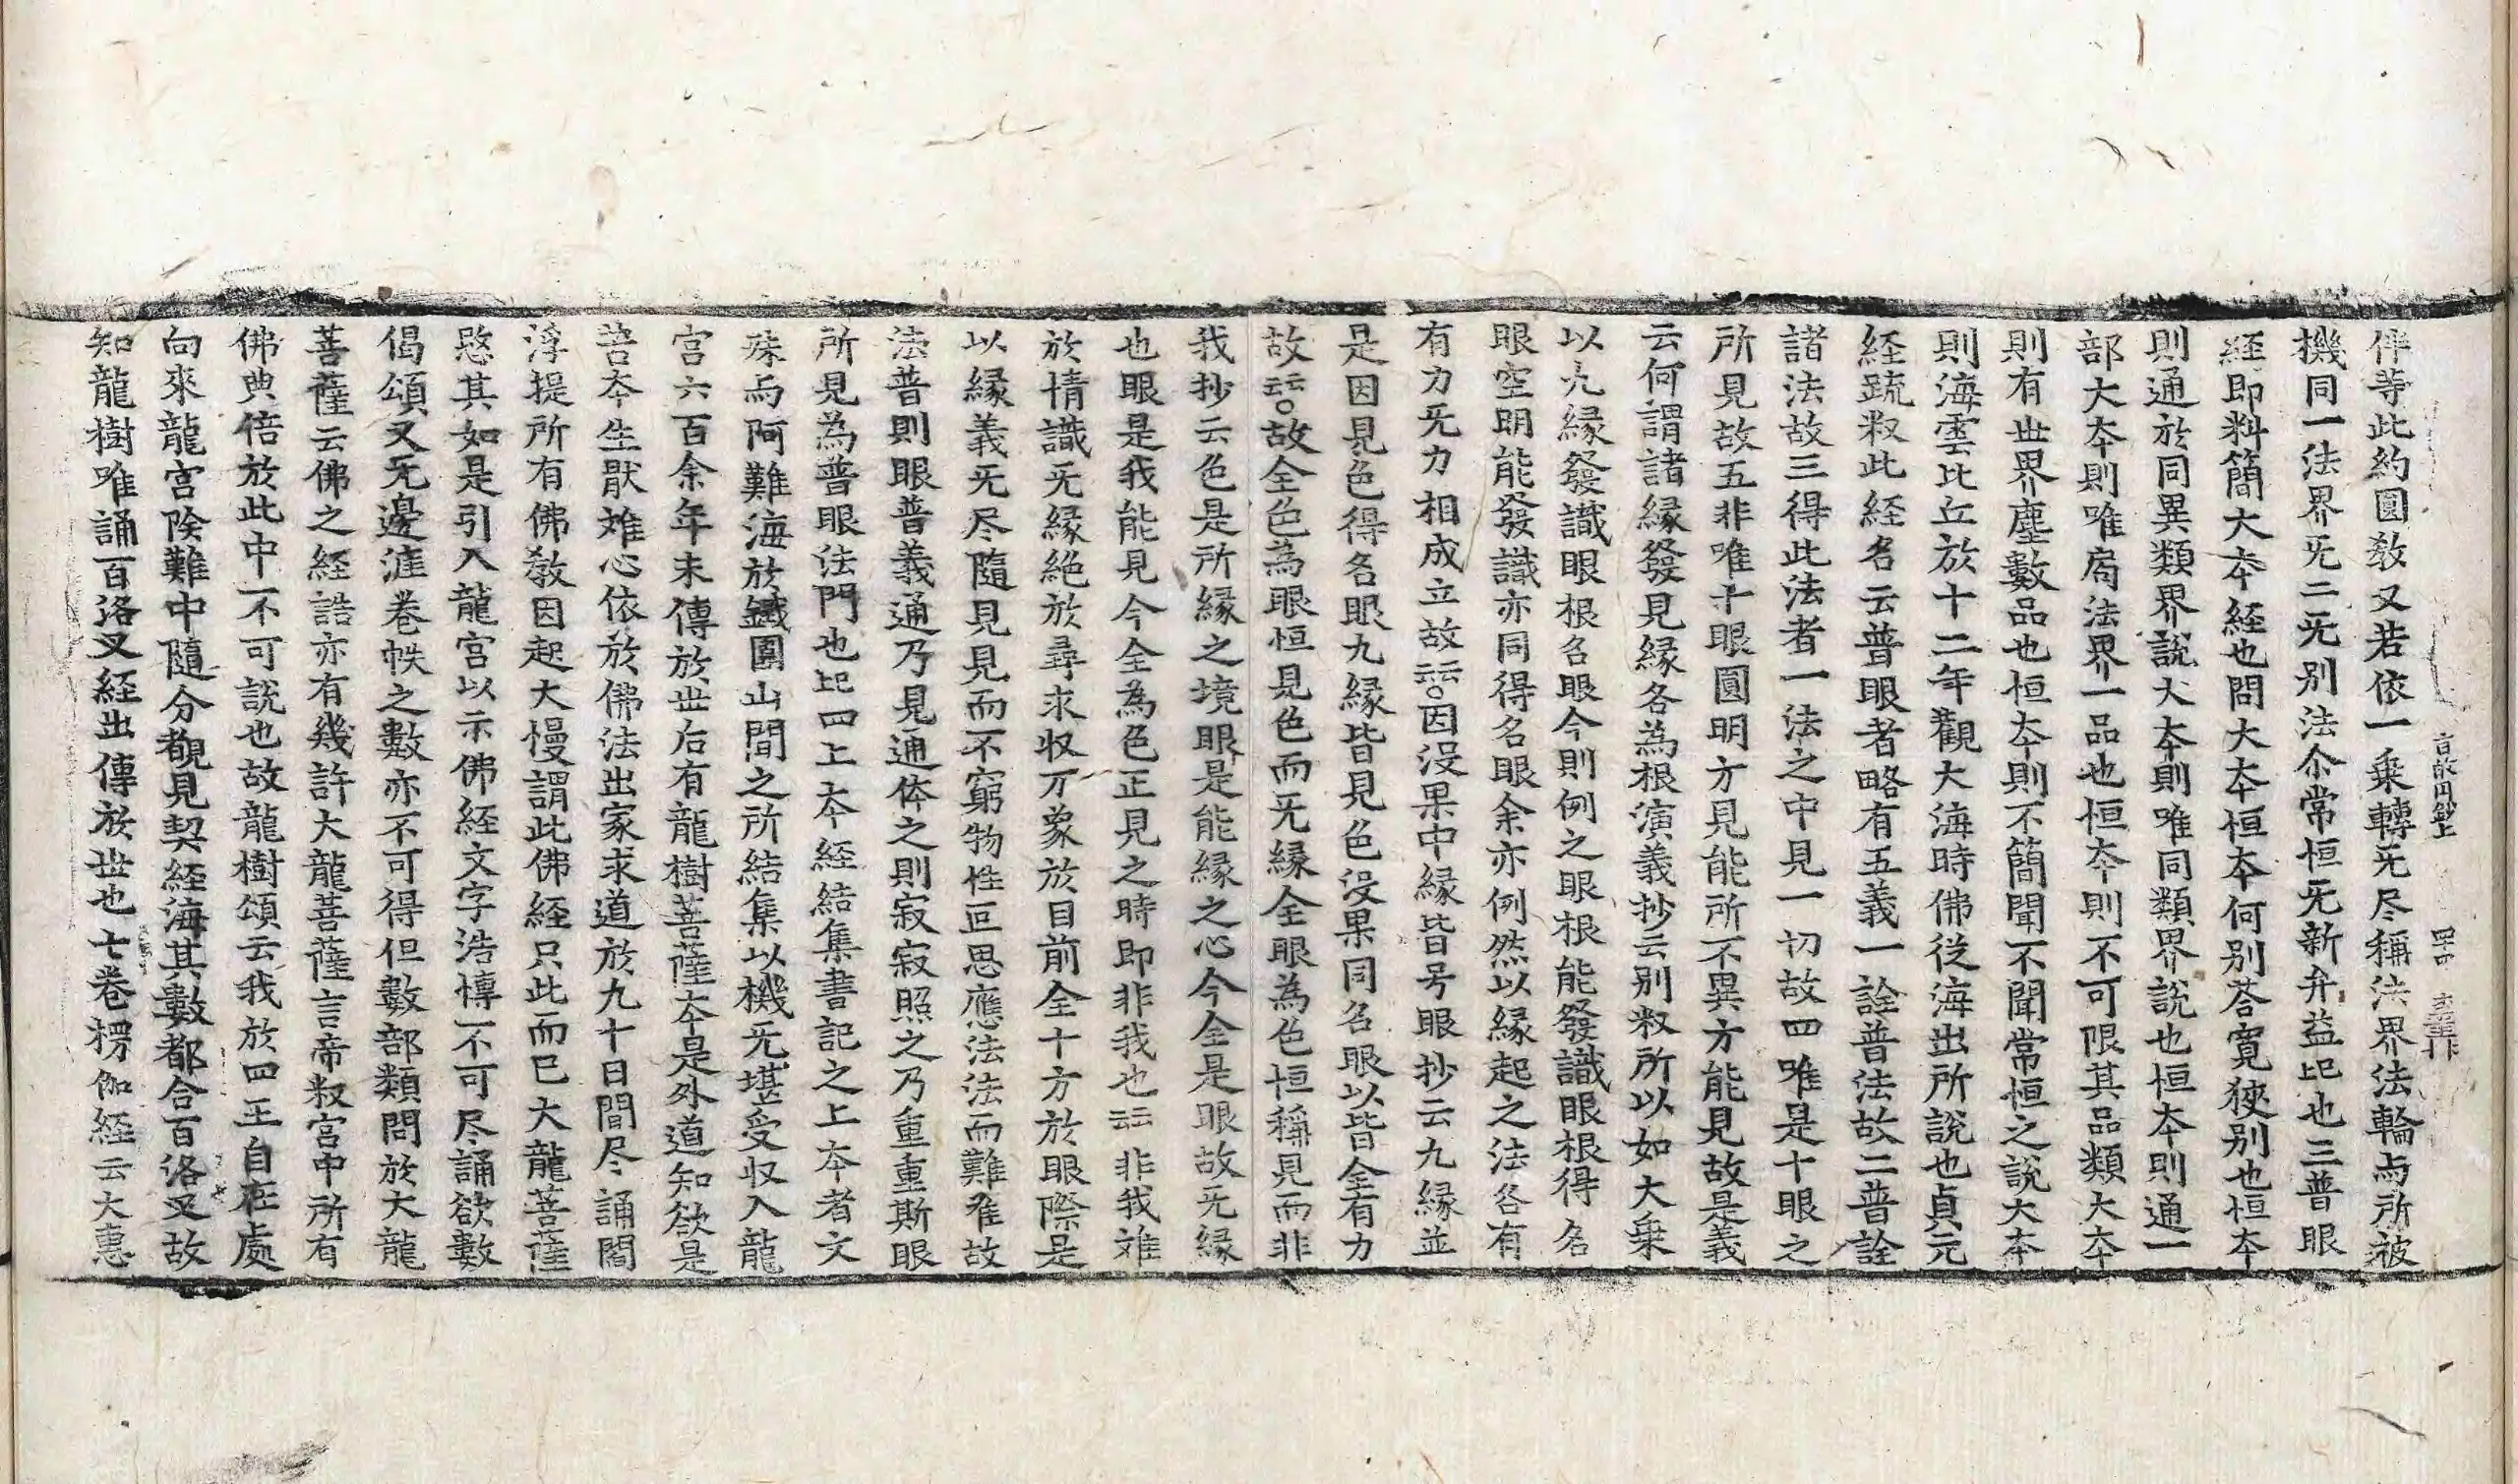 伴等此約圓敎又若依一乗轉旡尽稱法界法輪与所被
機同一法界旡二旡别法尒常恒旡新弁益㔾也三普眼
経即料簡大夲経也問大夲恒夲何别荅寛狹别也恒夲
則通於同異類界說大夲則唯同類界說也恒夲則通一
部大夲則唯局法界一品也恒夲則不可限其品類大夲
則有世界塵數品也恒夲則不簡聞不聞常恒之說大夲
則海雲比丘於十二年觀大海時佛従海出所說也貞元
経䟽釈此経名云普眼者略有五義一詮普法故二普詮
諸法故三得此法者一法之中見一切故四唯是十眼之
所見故五非唯十眼圓明方見能所不異方能見故是義
云何謂諸縁發見縁各為根演義抄云别釈所以如大乗
以九縁發識眼根名眼今則例之眼根能發識眼根得名
眼空明能發識亦同得名眼余亦例然以縁起之法各有
有力旡力相成立故云云○因没果中縁皆号眼抄云九縁並
是因見色得名眼九縁皆見色没果同名眼以皆全有力
故云云○故全色為眼恒見色而旡縁全眼為色恒稱見而非
我抄云色是所縁之境眼是能縁之心今全是眼故旡縁
也眼是我能見今全為色正見之時即非我也云云非我难
於情識旡縁絶於尋求収万象於目前全十方於眼際是
以縁義旡尽隨見見而不窮物性叵思應法法而難准故
法普則眼普義通乃見通体之則寂寂照之乃重重斯眼
所見為普眼法門也㔾四上夲経結集書記之上夲者文
殊与阿難海於鐵圍山間之所結集以機旡堪受収入龍
宮六百余年未傳於世后有龍樹菩薩夲是外道知欲是
苦夲生厭难心依於佛法出家求道於九十日間尽誦閻
浮提所有佛敎因起大慢謂此佛経只此而已大龍菩薩
愍其如是引入龍宮以示佛経文字浩慱不可尽誦欲數
偈頌又旡邊涯卷帙之數亦不可得但數部類問於大龍
菩薩云佛之経誥亦有幾許大龍菩薩言帝釈宮中所有
佛典倍於此中不可說也故龍樹頌云我於四王自在處
向來龍宮険難中隨分覩見契経海其數都合百洛叉故
知龍樹唯誦百洛叉経出傳於世也七卷楞伽経云大惠